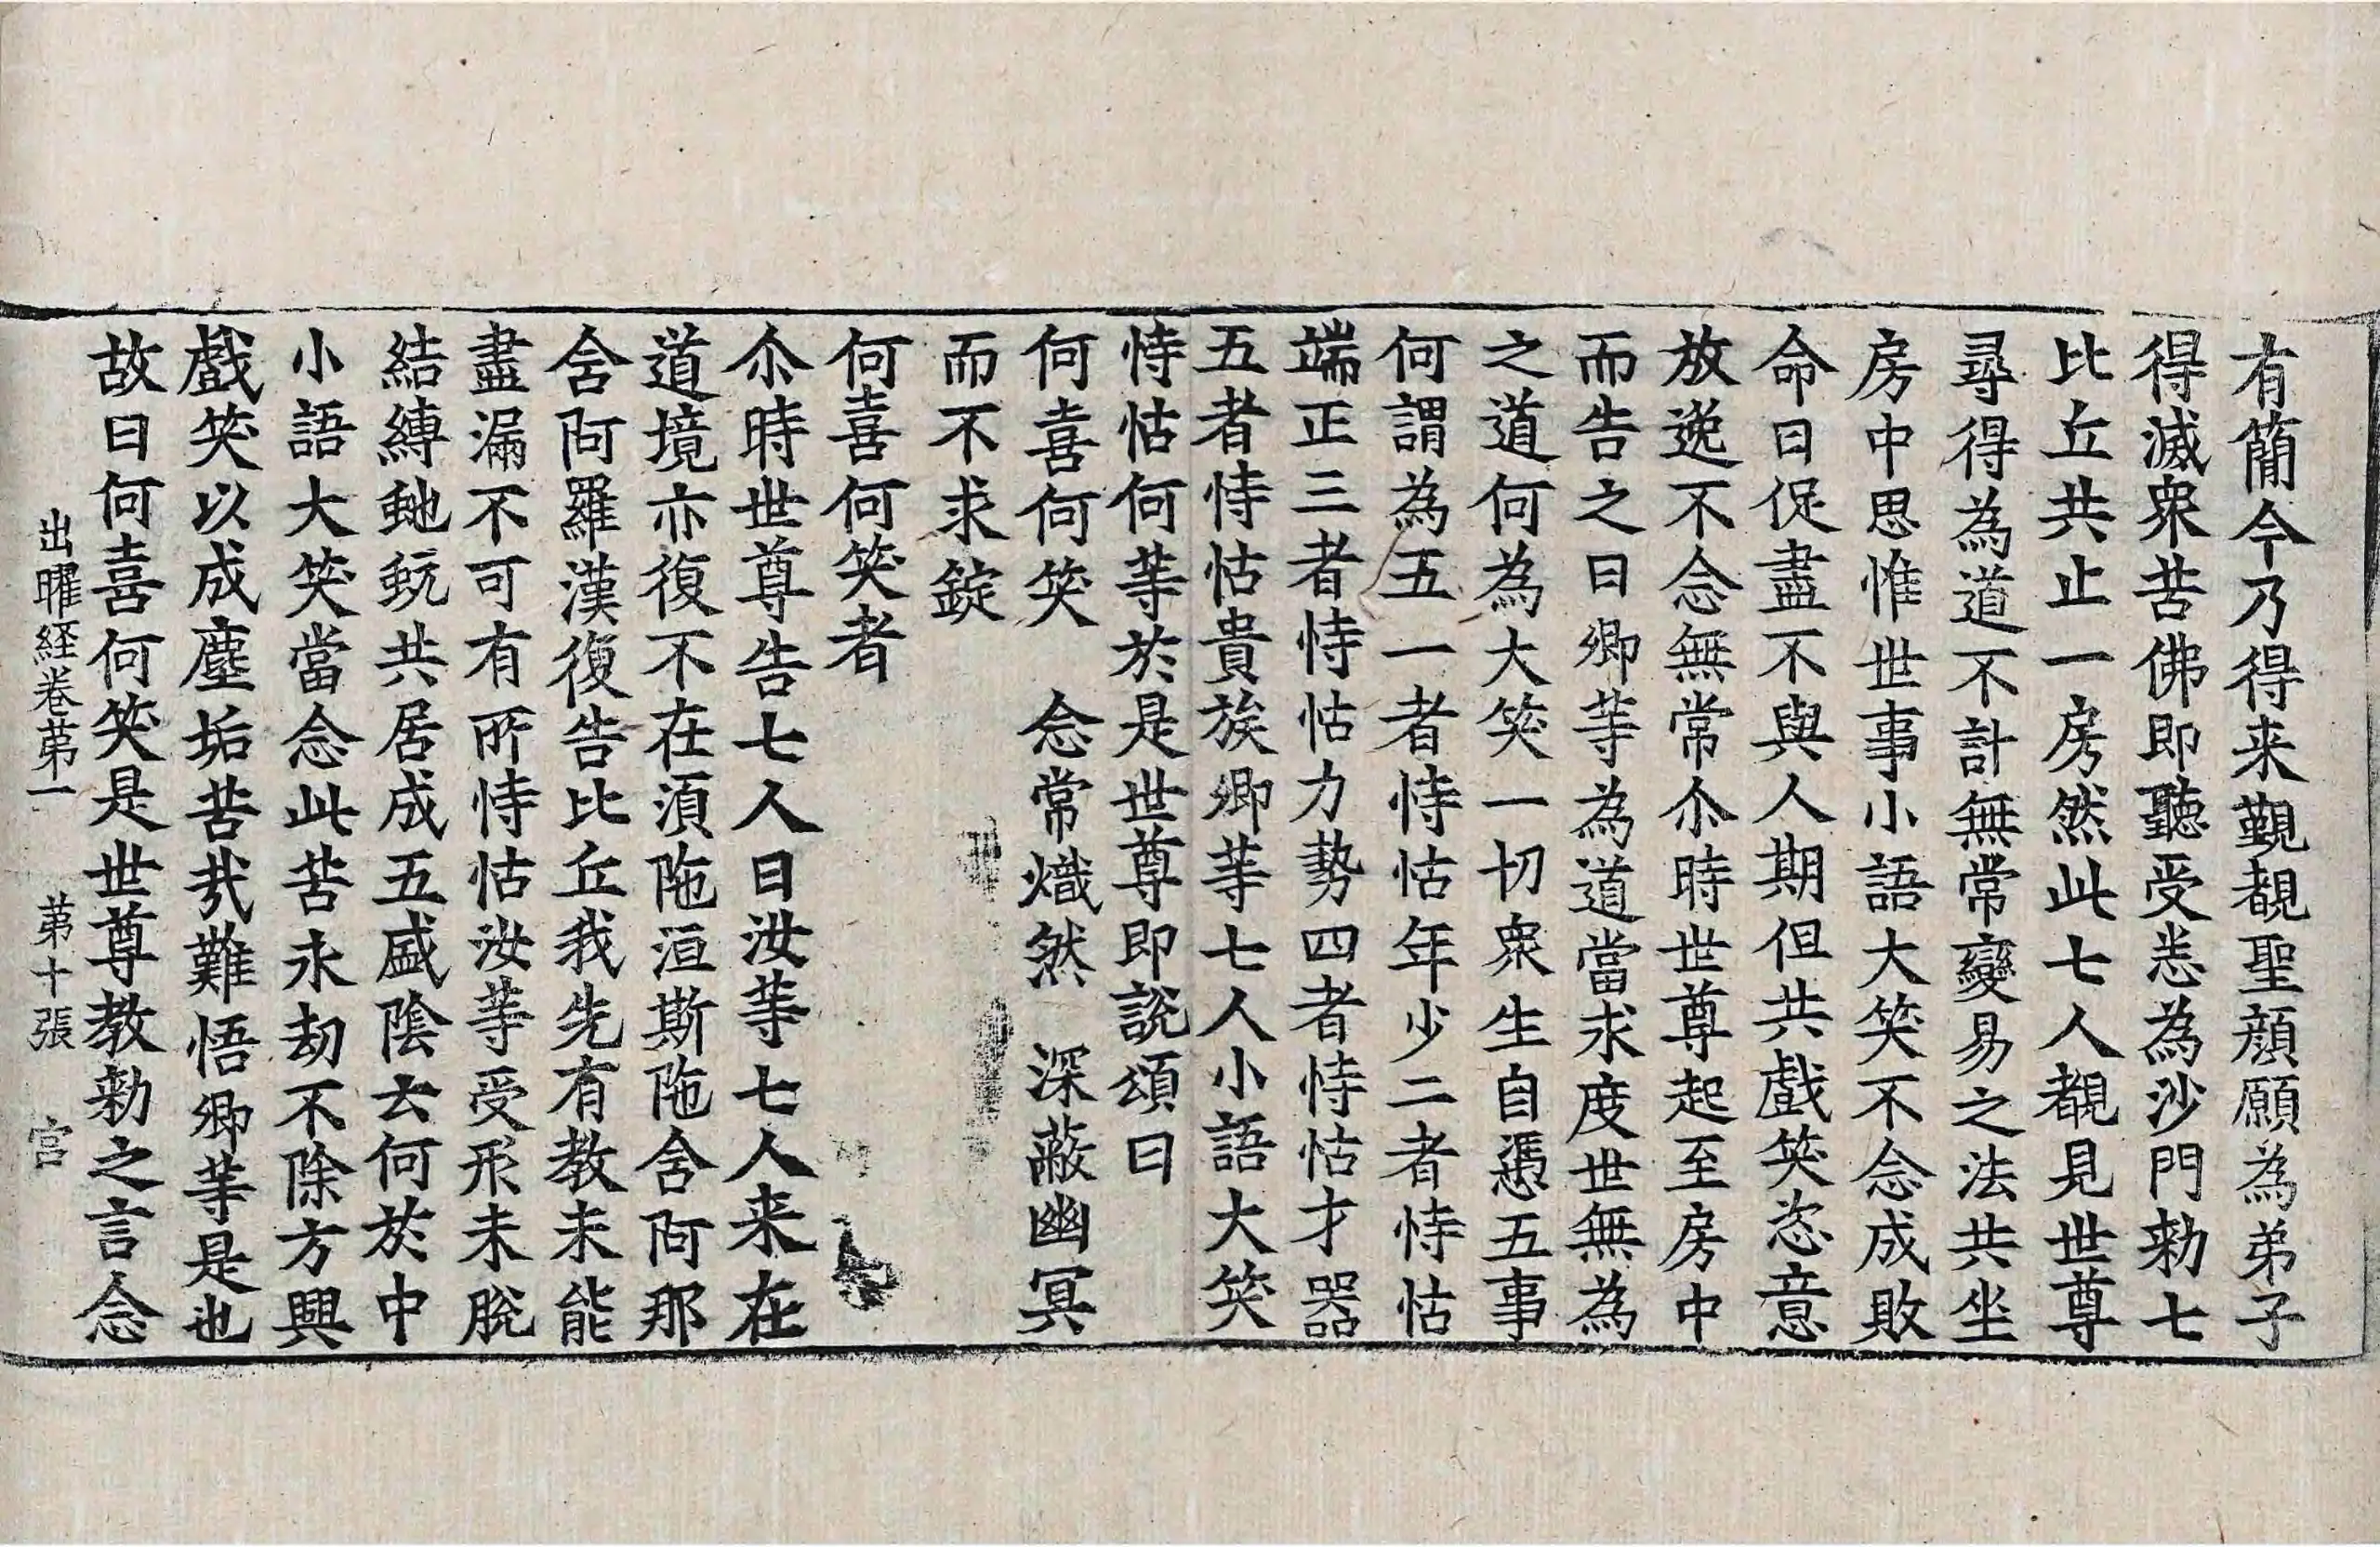 有簡今乃得来覲覩聖顔願為弟子
得滅衆苦佛即聽受悉為沙門勑七
比丘共止一房然此七人覩見世尊
尋得為道不計無常變易之法共坐
房中思惟世事小語大笑不念成敗
命日促盡不與人期但共戲笑恣意
放逸不念無常尒時世尊起至房中
而告之曰卿等為道當求度世無為
之道何為大笑一切衆生自憑五事
何謂為五一者恃怙年少二者恃怙
端正三者恃怙力勢四者恃怙才器
五者恃怙貴族卿等七人小語大笑
恃怙何等於是世尊即說頌曰
何喜何笑 念常熾然 深蔽幽冥
而不求錠
何喜何笑者
尒時世尊告七人曰汝等七人来在
道境亦復不在湏陁洹斯陁舍阿那
舍阿羅漢復告比丘我先有教未能
盡漏不可有所恃怙汝等受形未脫
結縛虵蚖共居成五盛陰云何於中
小語大笑當念此苦永劫不除方興
戲笑以成塵垢苦㢤難悟卿等是也
故曰何喜何笑是世尊教勑之言念
出曜経卷苐一 苐十張 宫